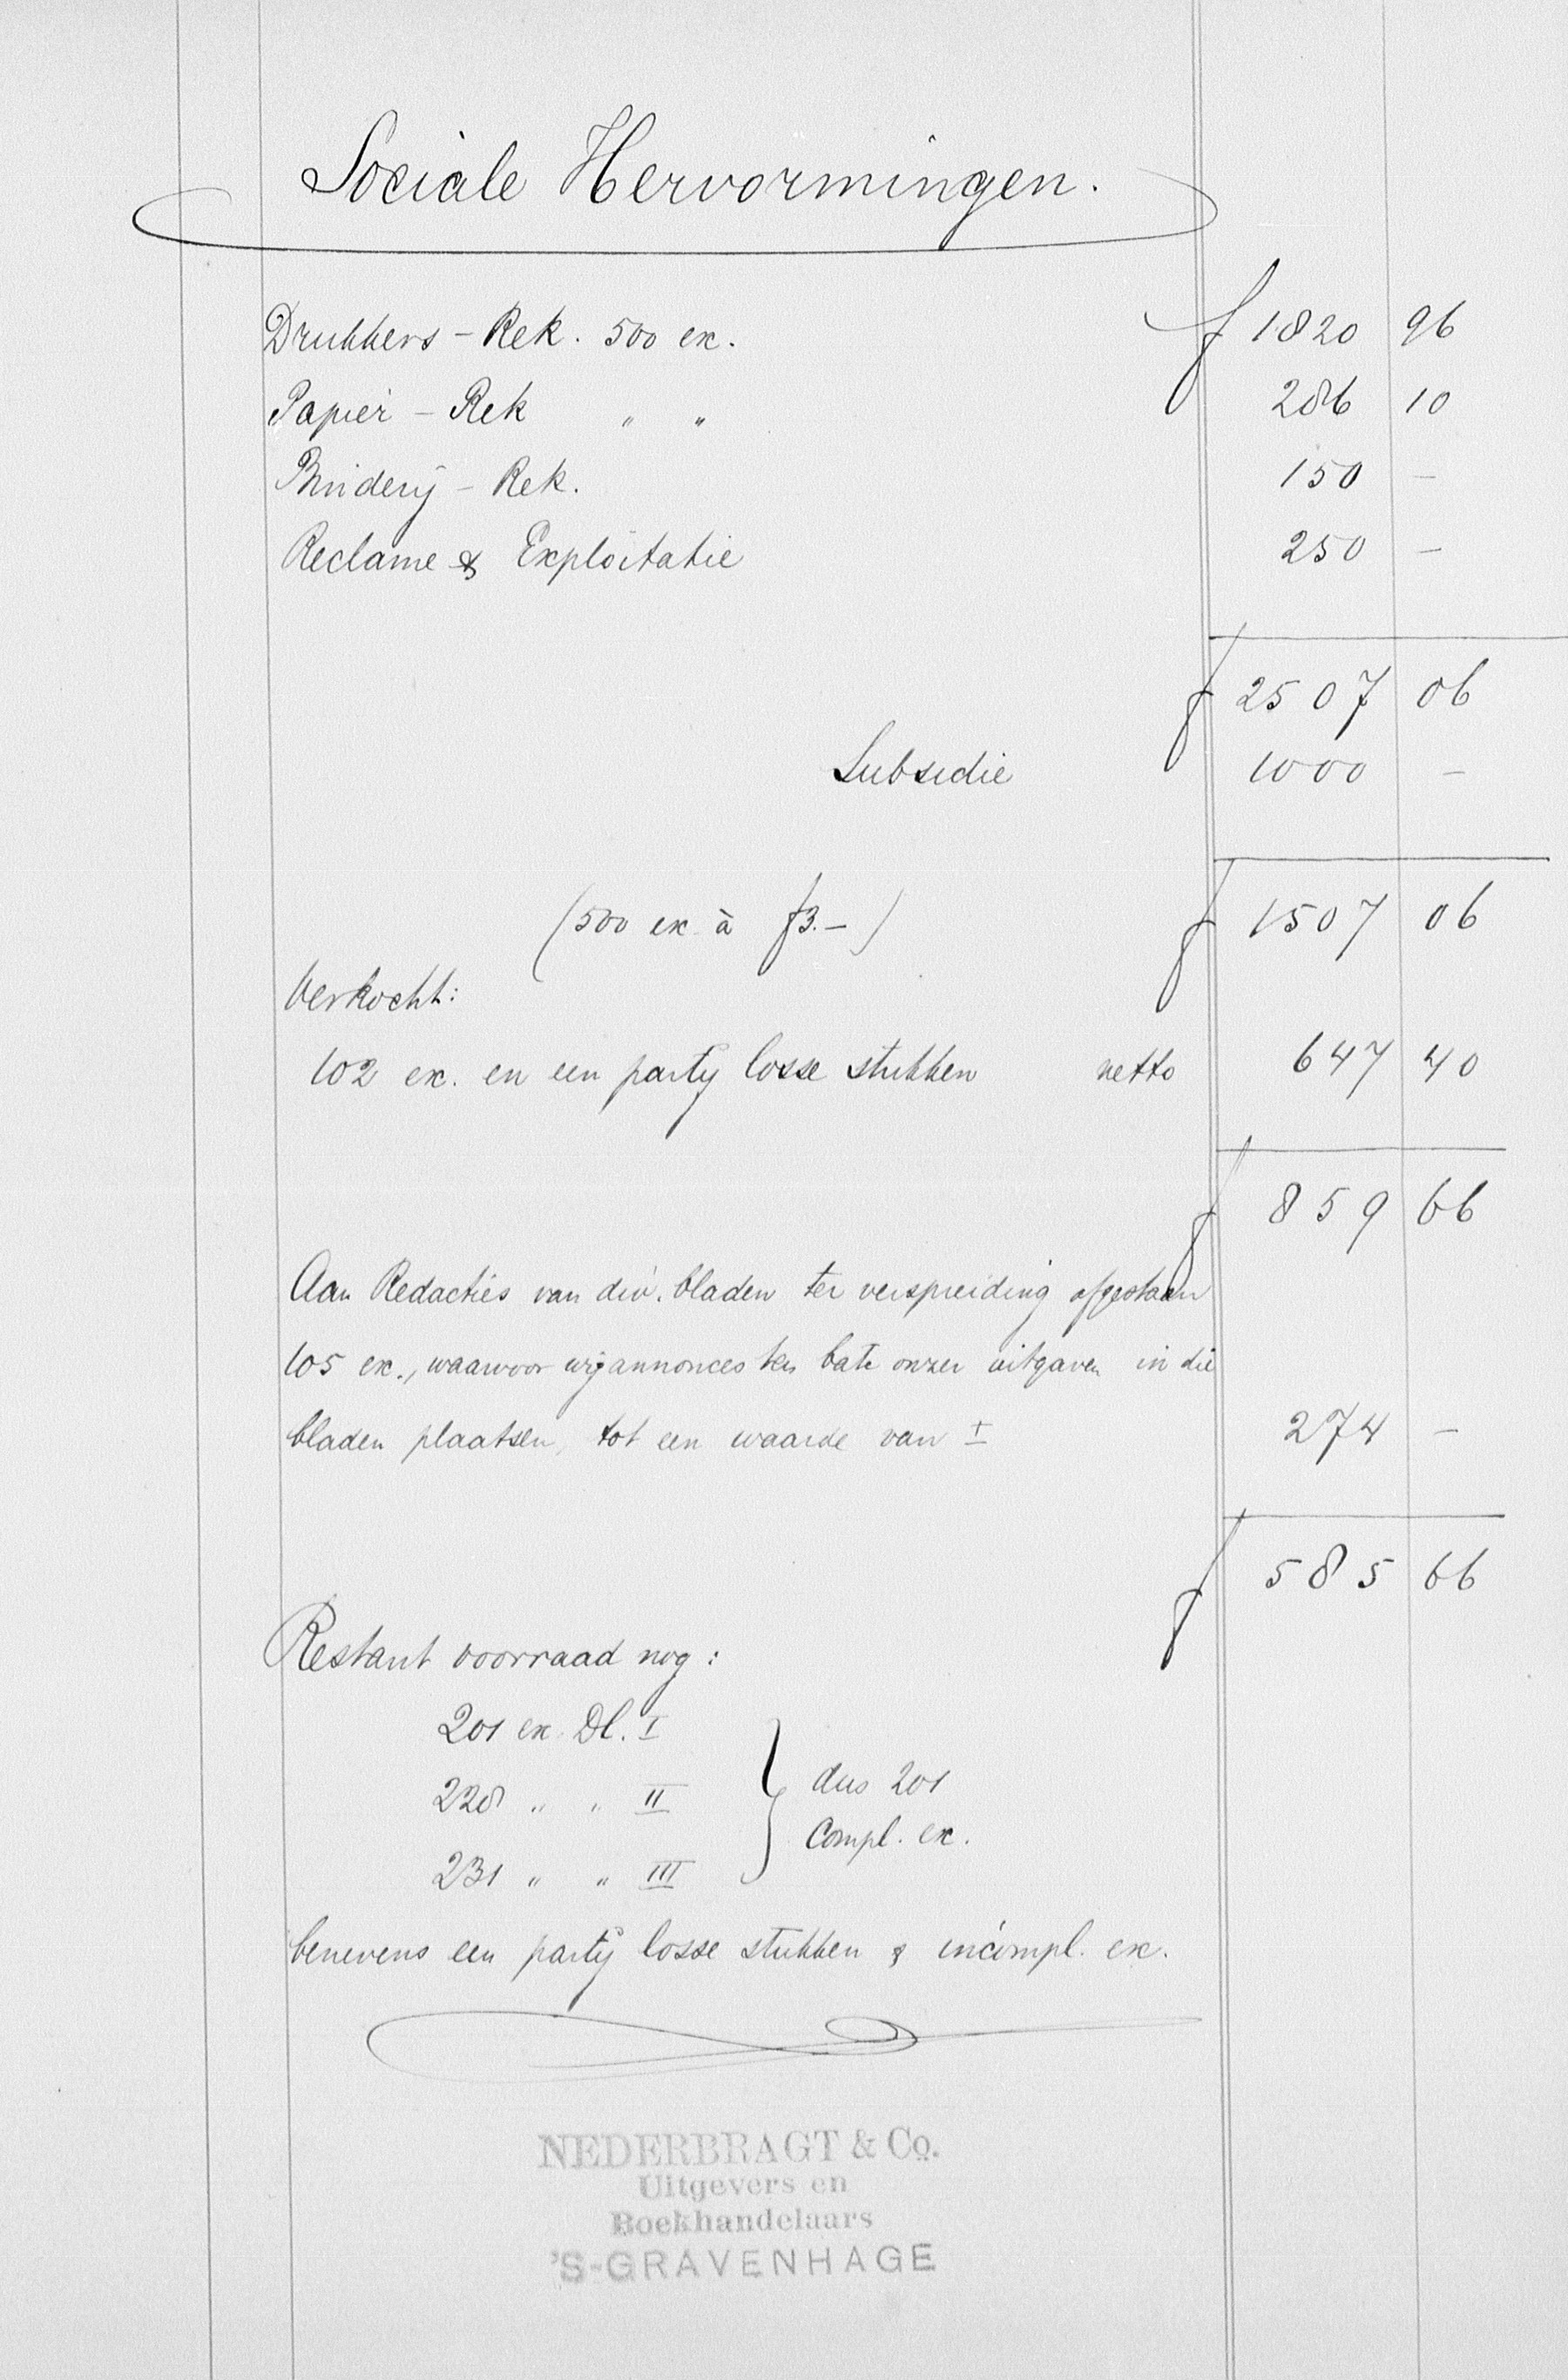 Sociale Hervormingen.
Drukkers - Rek. 500 ex. f 1820 96
Papier - Rek " " 286 10
Binderij - Rek. 150 -
Reclame & Exploitatie 250 -
f 2507 06
Subsidie 1000 -
(500 ex à f3.-) f 1507 06
Verkocht:
102 ex. en een partij losse stukken netto 647 40
f 859 66
Aan Redacties van div. bladen ter verspreiding afgestaan
105 ex., waarvoor wij annonces ten bate onzer uitgaven in die
bladen plaatsen, tot een waarde van ± 274 -
f 585 66
Restant voorraad nog:
201 ex. Dl. I
228 " " II } dus 201
compl. ex.
231 " " III
benevens een partij losse stukken & incompl. ex.
NEDERBRAGT & Co.
Uitgevers en
Boekhandelaars
'S-GRAVENHAGE